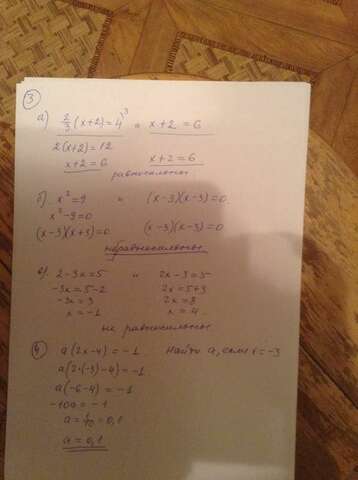 ③
а) 2/3 (x+2) = 4 |³ и x+2 = 6
2(x+2) = 12
x+2 = 6 x+2 = 6
равносильны
б) x² = 9 и (x-3)(x-3) = 0
x²-9=0
(x-3)(x+3)=0 (x-3)(x-3)=0
неравносильны
в) 2-3x=5 и 2x-3=5
-3x=5-2 2x=5+3
-3x=3 2x=8
x=-1 x=4
не равносильны
④ a(2x-4) = -1 Найти a, если x=-3
a(2·(-3)-4) = -1
a(-6-4) = -1
-10a = -1
a = 1/10 = 0,1
a = 0,1